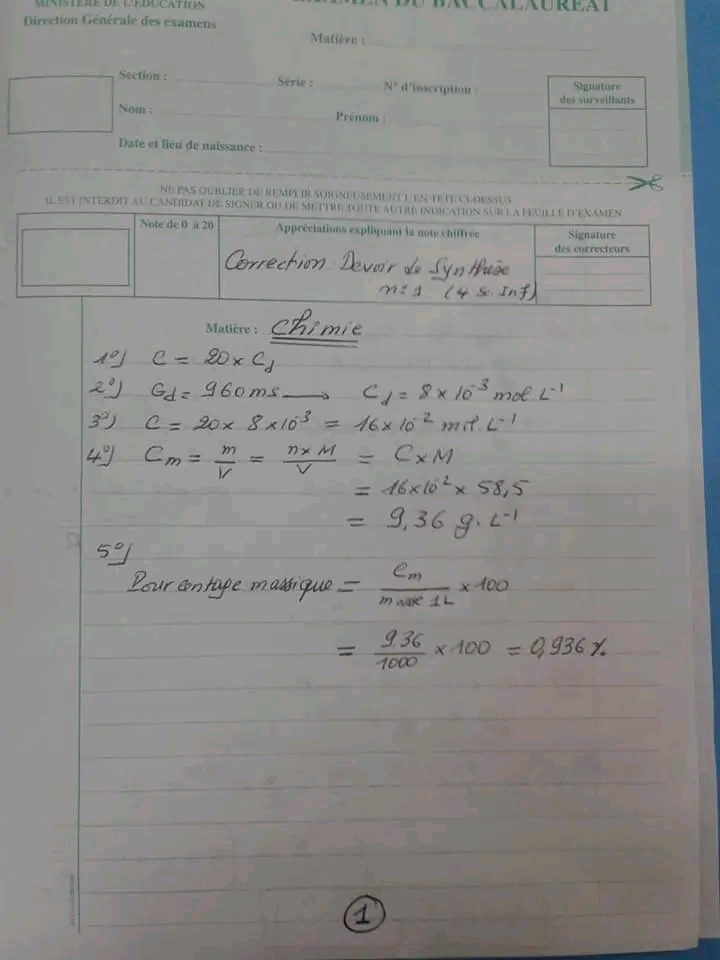 MINISTÈRE DE L'ÉDUCATION
EXAMEN DU BACCALAURÉAT
Direction Générale des examens
Matière :
Section : Série : N° d'inscription :
Signature des surveillants
Nom : Prénom :
Date et lieu de naissance :
NE PAS OUBLIER DE REMPLIR SOIGNEUSEMENT L'EN-TÊTE CI-DESSUS
IL EST INTERDIT AU CANDIDAT DE SIGNER OU DE METTRE TOUTE AUTRE INDICATION SUR LA FEUILLE D'EXAMEN
Note de 0 à 20
Appréciations expliquant la note chiffrée
Signature des correcteurs
Correction Devoir de Synthèse
n°1 (4 Sc. Inf)
Matière : Chimie
1°) C = 20 × Cd
2°) Gd = 960 ms → Cd = 8 × 10⁻³ mol.L⁻¹
3°) C = 20 × 8 × 10⁻³ = 16 × 10⁻² mol.L⁻¹
4°) Cm = m/V = n×M/V = C × M
= 16×10⁻² × 58,5
= 9,36 g.L⁻¹
5°)
Pourcentage massique = Cm / m 1L × 100
= 9.36/1000 × 100 = 0,936 %
1